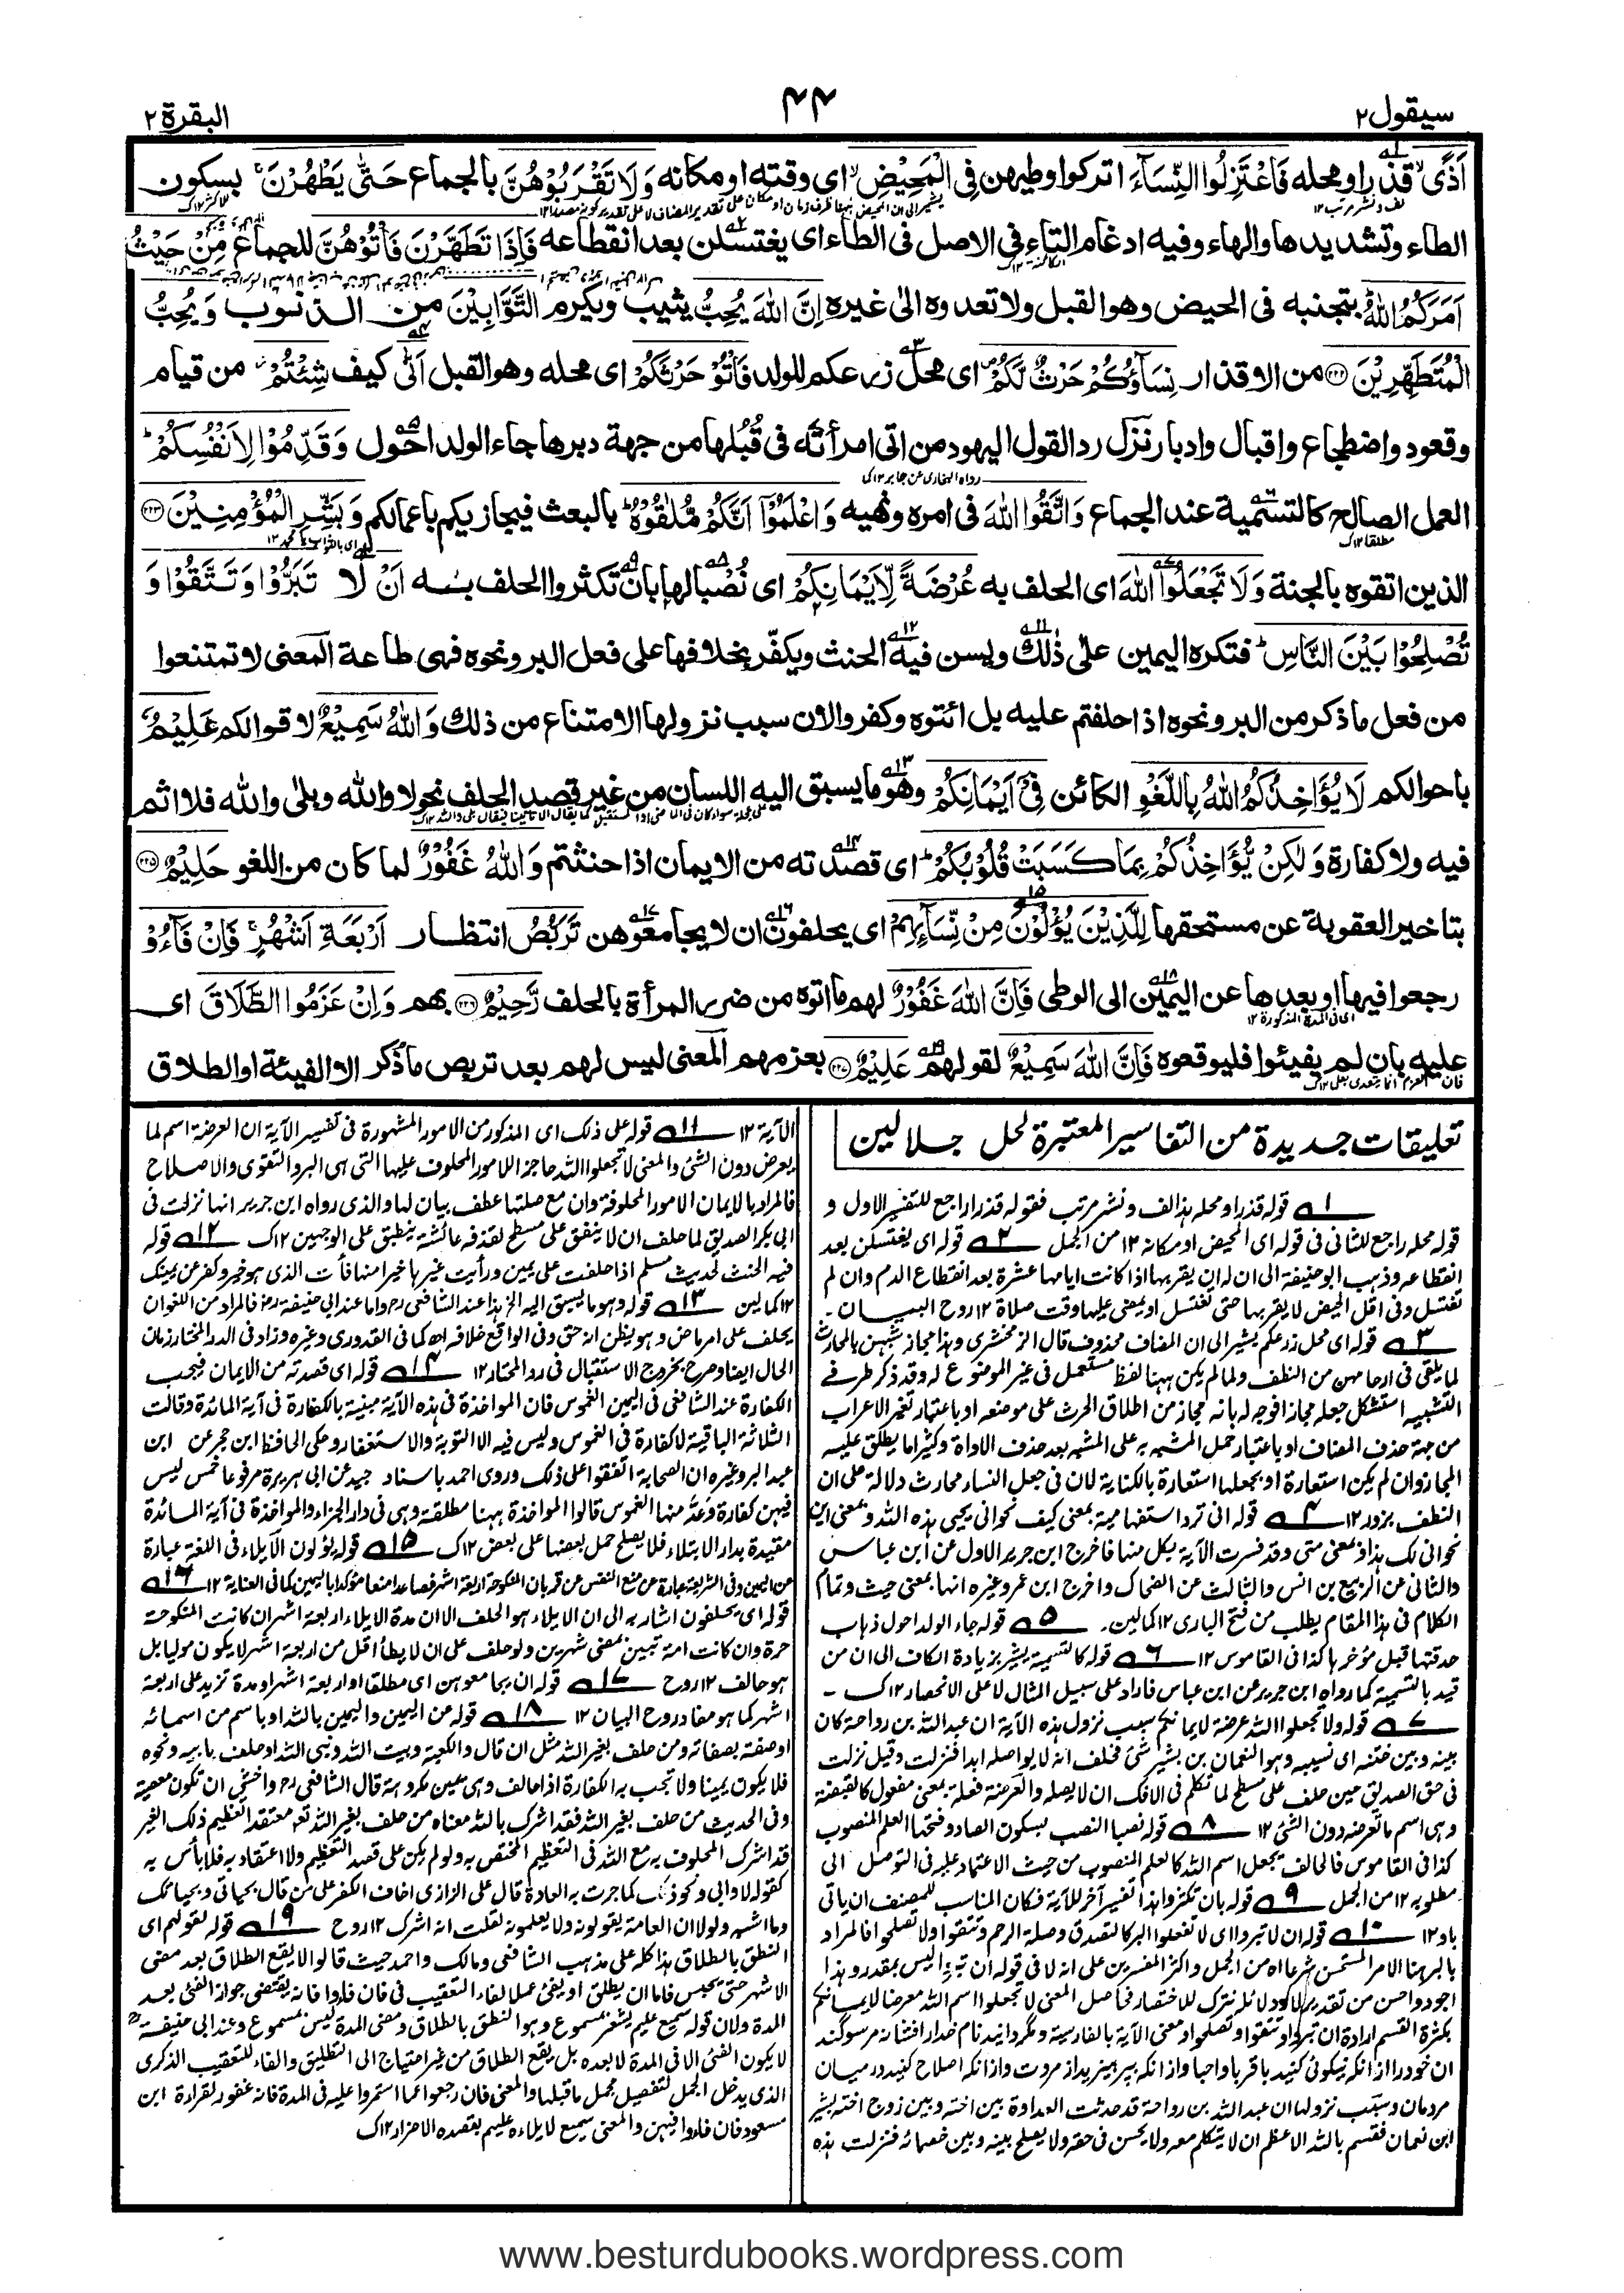 سيقول٢
٣٤
البقرة٢
اَذًى قذراو محله فَاعْتَزِلُوا النِّسَآءَ اتركوا وطيهن فِي الْمَحِيْضِ اى وقته او مكانه وَلَا تَقْرَبُوْهُنَّ بالجماع حَتّٰى يَطْهُرْنَ بسكون
الطاء وتشديدها والهاء وفيه ادغام التاء فى الاصل فى الطاء اى يغتسلن بعد انقطاعه فَاِذَا تَطَهَّرْنَ فَأْتُوْهُنَّ للجماع مِنْ حَيْثُ
اَمَرَكُمُ اللّٰهُ بتجنبه فى الحيض وهو القبل ولا تعدوه الى غيره اِنَّ اللّٰهَ يُحِبُّ يثيب ويكرم التَّوَّابِيْنَ من الذنوب وَيُحِبُّ
الْمُتَطَهِّرِيْنَ ٢٢٢ من الاقذار نِسَآؤُكُمْ حَرْثٌ لَّكُمْ اى محل زرعكم للولد فَأْتُوْا حَرْثَكُمْ اى محله وهو القبل اَنّٰى كيف شِئْتُمْ من قيام
وقعود واضطجاع واقبال وادبار نزل ردا لقول اليهود من اتى امرأته فى قُبُلها من جهة دبرها جاء الولد احول وَقَدِّمُوْا لِاَنْفُسِكُمْ
العمل الصالح كالتسمية عند الجماع وَاتَّقُوا اللّٰهَ فى امره ونهيه وَاعْلَمُوْٓا اَنَّكُمْ مُّلٰقُوْهُ بالبعث فيجازيكم باعمالكم وَبَشِّرِ الْمُؤْمِنِيْنَ ٢٢٣
الذين اتقوه بالجنة وَلَا تَجْعَلُوا اللّٰهَ اى الحلف به عُرْضَةً لِّاَيْمَانِكُمْ اى نُصُبا لها بان تكثروا الحلف به اَنْ لا تَبَرُّوْا وَتَتَّقُوْا وَ
تُصْلِحُوْا بَيْنَ النَّاسِ فتكره اليمين على ذلك ويسن فيه الحنث ويكفّر بخلافها على فعل البر ونحوه فهى طاعة المعنى لا تمتنعوا
من فعل ماذكر من البر ونحوه اذا حلفتم عليه بل ائتوه وكفروا لان سبب نزولها الامتناع من ذلك وَاللّٰهُ سَمِيْعٌ لاقوالكم عَلِيْمٌ
باحوالكم لَا يُؤَاخِذُكُمُ اللّٰهُ بِاللَّغْوِ الكائن فِيْٓ اَيْمَانِكُمْ وهو ما يسبق اليه اللسان من غير قصد الحلف نحو لا والله وبلى والله فلا اثم
فيه ولا كفارة وَلٰكِنْ يُّؤَاخِذُكُمْ بِمَا كَسَبَتْ قُلُوْبُكُمْ اى قصدته من الايمان اذا حنثتم وَاللّٰهُ غَفُوْرٌ لما كان من اللغو حَلِيْمٌ ٢٢٥
بتاخير العقوبة عن مستحقها لِلَّذِيْنَ يُؤْلُوْنَ مِنْ نِّسَآئِهِمْ اى يحلفون ان لا يجامعوهن تَرَبُّصُ انتظار اَرْبَعَةِ اَشْهُرٍ فَاِنْ فَآءُوْ
رجعوا فيها او بعدها عن اليمين الى الوطى فَاِنَّ اللّٰهَ غَفُوْرٌ لهم ما اتوه من ضرر المرأة بالحلف رَّحِيْمٌ ٢٢٦ بهم وَاِنْ عَزَمُوا الطَّلَاقَ اى
عليه بان لم يفيئوا فليوقعوه فَاِنَّ اللّٰهَ سَمِيْعٌ لقولهم عَلِيْمٌ ٢٢٧ بعزمهم المعنى ليس لهم بعد تربص ماذُكر الا الفيئة او الطلاق
تعليقات جديدة من التفاسير المعتبرة لحل جلالين
١ قوله قذرا ومحله هذا لف ونشر مرتب فقوله قذرا راجع للتفسير الاول و
قوله محله راجع للثانى فى قوله اى المحيض او مكانه ١٢ من الجمل ٢ قوله اى يغتسلن بعد
انقطاعه وذهب ابو حنيفة الى ان له ان يقربها اذا كانت ايامها عشرة بعد انقطاع الدم وان لم
تغتسل وفى اقل الحيض لا يقربها حتى تغتسل او يمضى عليها وقت صلاة ١٢ روح البيان۔
٣ قوله اى محل زرعكم يشير الى ان المضاف محذوف قال الزمخشرى وهذا مجاز شبهن بالمحارث
لما يلقى فى ارحامهن من النطف ولما لم يكن ههنا لفظ مستعمل فى غير الموضوع له وقد ذكر طرفى
التشبيه استشكل جعله مجازا فوجه له بانه مجاز من اطلاق الحرث على موضعه او باعتبار تغير الاعراب
من جهة حذف المضاف او باعتبار حمل المشبه به على المشبه بعد حذف الاداة وكثيرا ما يطلق عليه
المجاز وان لم يكن استعارة او بجعلها استعارة بالكناية لان فى جعل النساء محارث دلالة على ان
النطف بزور ١٢ ٤ قوله انى ترد استفهامية بمعنى كيف نحو انى يحيى هذه الله وبمعنى اين
نحو انى لك هذا وبمعنى متى وقد فسرت الآية بكل منها فاخرج ابن جرير الاول عن ابن عباس
والثانى عن الربيع بن انس والثالث عن الضحاك واخرج ابن عمر وغيره انها بمعنى حيث وتمام
الكلام فى هذا المقام يطلب من فتح البارى ١٢ كمالين۔ ٥ قوله جاء الولد احول ذهاب
حدقتها قبل مؤخرها كذا فى القاموس ١٢ ٦ قوله كالتسمية يشير بزيادة الكاف الى ان من
قيد بالتسمية كما رواه ابن جرير عن ابن عباس فاراد على سبيل المثال لا على الانحصار ١٢ ك۔
٧ قوله ولا تجعلوا الله عرضة لايمانكم سبب نزول هذه الآية ان عبد الله بن رواحة كان
بينه وبين ختنه اى نسيبه وهو النعمان بن بشير شئ فحلف انه لا يواصله ابدا فنزلت وقيل نزلت
فى حق الصديق حين حلف على مسطح لما تكلم فى الافك ان لا يصله والعرضة فعلة بمعنى مفعول كالقبضة
وهى اسم ما تعرضه دون الشئ ١٢ ٨ قوله نصبا النصب بسكون الصاد وفتحها العلم المنصوب
كذا فى القاموس فالحالف يجعل اسم الله كالعلم المنصوب من حيث الاعتماد عليه فى التوصل الى
مطلوبه ١٢ من الجمل ٩ قوله بان تكثروا هذا تفسير آخر للآية فكان المناسب للمصنف ان ياتى
باو ١٢ ١٠ قوله ان لا تبروا اى لا تفعلوا البر كالتصدق وصلة الرحم وتتقوا ولا تصلحوا فالمراد
بالبر هنا الامر المستحسن شرعا اه من الجمل واكثر المفسرين على انه لا فى قوله ان تبروا ليس بمقدر وهذا
اجود واحسن من تقدير لا ودلائله نترك للاختصار فحاصل المعنى لا تجعلوا اسم الله معرضا لايمانكم
بكثرة القسم ارادة ان تبروا وتتقوا وتصلحوا ومعنى الآية بالفارسية ومگردانيد نام خدا را نشانه مر سوگند
ان خود را از آنكه نيكوئى كنيد باقرباواحبا واز انكه بپرهيزيد از مروت وازانكه اصلاح كنيد درميان
مردمان وسبب نزولها ان عبد الله بن رواحة قد حدثت العداوة بين اخته وبين زوج اخته بشير
ابن نعمان فقسم بالله الاعظم ان لا يتكلم معه ولا يحسن فى حقه ولا يصلح بينه وبين خصمائه فنزلت هذه
الآية ١٢ ١١ قوله على ذلك اى المذكور من الامور المشهورة فى تفسير الآية ان العرضة اسم لما
يعرض دون الشئ والمعنى لا تجعلوا الله حاجزا للامور المحلوف عليها التى هى البر والتقوى والاصلاح
فالمراد بالايمان الامور المحلوفة وان مع صلتها عطف بيان لها والذى رواه ابن جرير انها نزلت فى
ابى بكر الصديق لما حلف ان لا ينفق على مسطح لقذفه عائشة ينطبق على الوجهين ١٢ ك ١٢ قوله
فيه الحنث لحديث مسلم اذا حلفت على يمين ورأيت غيرها خيرا منها فأت الذى هو خير وكفر عن يمينك
١٢ كمالين ١٣ قوله وهو ما يسبق اليه الخ هذا عند الشافعى رح واما عند ابى حنيفة رح فالمراد من اللغو ان
يحلف على امر ماض وهو يظن انه حق وفى الواقع خلافه اه كما فى القدورى وغيره وزاد فى الدر المختار زمان
الحال ايضا وصرح بخروج الاستقبال فى رد المحتار ١٢ ١٤ قوله اى قصدته من الايمان فيجب
الكفارة عند الشافعى فى اليمين الغموس فان المواخذة فى هذه الآية مبنية بالكفارة فى آية المائدة وقالت
الثلاثة الباقية لا كفارة فى الغموس وليس فيه الا التوبة والاستغفار وحكى الحافظ ابن حجر عن ابن
عبد البر وغيره ان الصحابة اتفقوا على ذلك وروى احمد باسناد جيد عن ابى هريرة مرفوعا خمس ليس
فيهن كفارة وعد منها الغموس قالوا المواخذة ههنا مطلقة وهى فى دار الجزاء والمواخذة فى آية المائدة
مقيدة بدار الابتلاء فلا يصلح حمل بعضها على بعض ١٢ ك ١٥ قوله يؤلون الايلاء فى اللغة عبارة
عن اليمين وفى الشريعة عبارة عن منع النفس عن قربان المنكوحة اربعة اشهر فصاعدا منعا مؤكدا باليمين كما فى العناية ١٢ ١٦
قوله اى يحلفون اشار به الى ان الايلاء هو الحلف الا ان مدة الايلاء اربعة اشهر ان كانت المنكوحة
حرة وان كانت امة تبين بمضى شهرين ولو حلف على ان لا يطأ اقل من اربعة اشهر لا يكون موليا بل
هو حالف ١٢ روح ١٧ قوله ان يجامعوهن اى مطلقا او اربعة اشهر او مدة تزيد على اربعة
اشهر كما هو مفاد روح البيان ١٢ ١٨ قوله من اليمين واليمين بالله او باسم من اسمائه
او صفة بصفاته ومن حلف بغير الله مثل ان قال والكعبة وبيت الله ونبى الله او حلف بابيه ونحوه
فلا يكون يمينا ولا تجب به الكفارة اذا حالف وهى يمين مكروهة قال الشافعى رح واخشى ان تكون معصية
وفى الحديث من حلف بغير الله فقد اشرك بالله معناه من حلف بغير الله تعه معتقدا لتعظيم ذلك الغير
قد اشرك المحلوف به مع الله فى التعظيم المختص به ولو لم يكن على قصد التعظيم ولا اعتقاد به فلا بأس به
كقوله لا وابى ونحو ذلك كما جرت به العادة قال على الرازى اخاف الكفر على من قال بحياتى وبحياتك
وما اشبهه ولولا ان العامة يقولونه ولا يعلمونه لقلت انه اشرك ١٢ روح ١٩ قوله لقولهم اى
النطق بالطلاق هذا كله على مذهب الشافعى ومالك واحمد حيث قالوا لا يقع الطلاق بعد مضى
الاشهر حتى يحبس فاما ان يطلق او يفئ عملا لفاء التعقيب فى فان فاءوا فانه يقتضى جواز الفئ بعد
المدة ولان قوله سميع عليم يشعر بمسموع وهو النطق بالطلاق ومضى المدة ليس بمسموع وعند ابى حنيفة رح
لا يكون الفئ الا فى المدة لا بعده بل يقع الطلاق من غير احتياج الى التطليق والفاء للتعقيب الذكرى
الذى يدخل الجمل لتفصيل مجمل ما قبلها والمعنى فان رجعوا عما استمروا عليه فى المدة فانه غفور لقراءة ابن
مسعود فان فاءوا فيهن والمعنى سميع لايلاءه عليم بقصده الاضرار ١٢ ك
www.besturdubooks.wordpress.com